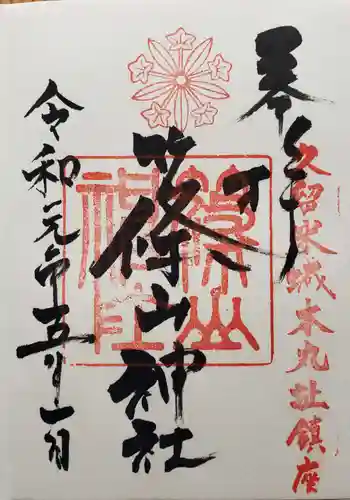 奉拝
久留米城本丸址鎮座
篠山神社
篠山神社
令和元年五月一日